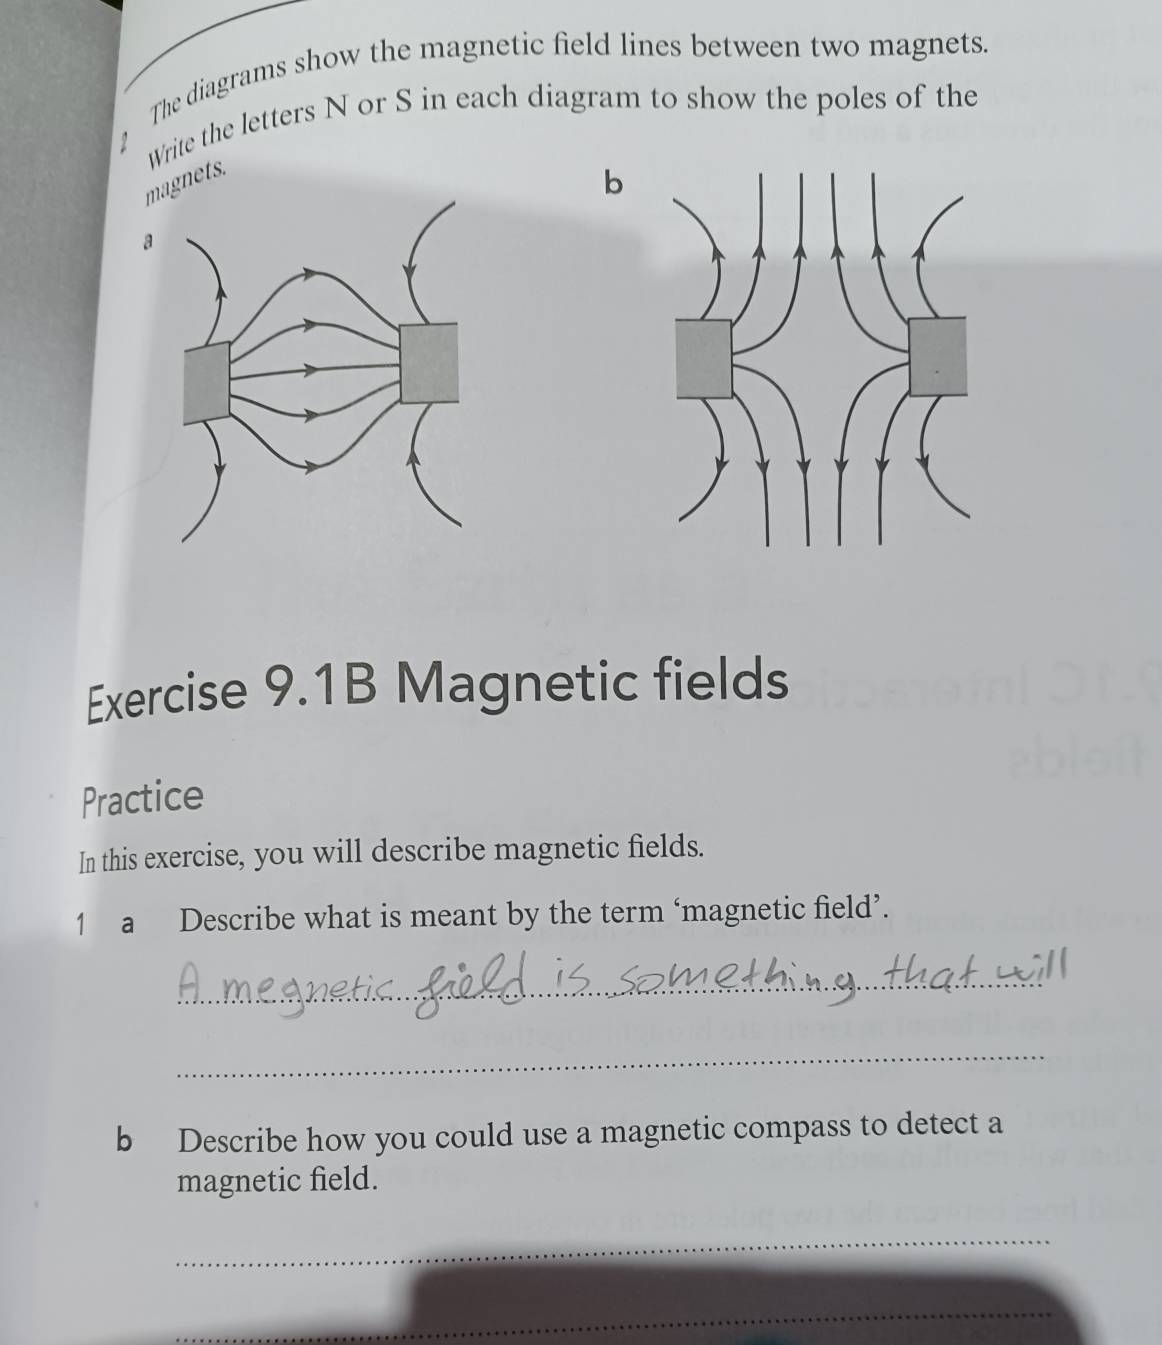 2 The diagrams show the magnetic field lines between two magnets.
Write the letters N or S in each diagram to show the poles of the
magnets.
a
b
Exercise 9.1B Magnetic fields
Practice
In this exercise, you will describe magnetic fields.
1 a Describe what is meant by the term ‘magnetic field’.
A megnetic field is something that will
b Describe how you could use a magnetic compass to detect a
magnetic field.